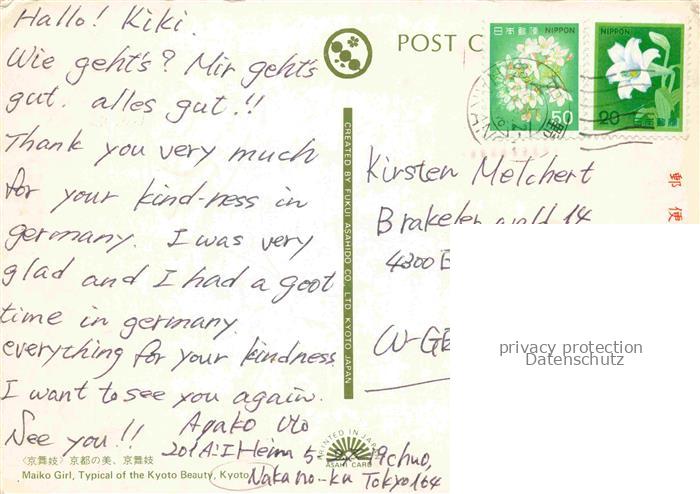 Hallo! Kiki.
Wie geht's? Mir geht's
gut. alles gut.!!
Thank you very much
for your kind-ness in
germany. I was very
glad and I had a goot
time in germany.
everything for your kindness
I want to see you again.
See you!!
Ayako Uto
201 A:I Heim 5-
chuo,
Nakano-ku Tokyo 164
〈京舞妓〉京都の美、京舞妓
Maiko Girl, Typical of the Kyoto Beauty, Kyoto
CREATED BY FUKUI ASAHIDO CO., LTD KYOTO JAPAN
PRINTED IN JAPAN
ASAHI CARD
POST C
日本郵便 NIPPON
50
NIPPON
20 日本郵便
郵便
Kirsten Melchert
Brakeler wald 14
4300 E
W-GE
privacy protection
Datenschutz